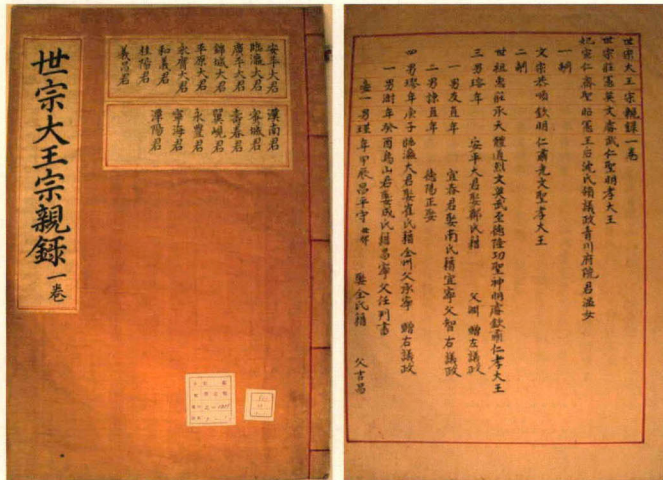 安平大君
臨瀛大君
廣平大君
錦城大君
平原大君
永膺大君
和義君
桂陽君
義昌君
漢南君
密城君
壽春君
翼峴君
永豊君
寧海君
潭陽君
世宗大王宗親錄 一卷
世宗大王宗親錄一卷
世宗莊憲英文睿武仁聖明孝大王
妃宣仁齊聖昭憲王后沈氏籍議政青川府院君溫女
一嗣
文宗恭順欽明仁肅光文聖孝大王
二嗣
世祖惠莊承天體道烈文英武至德隆功聖神明睿欽肅仁孝大王
三男瑢年 安平大君娶鄭氏籍 父淵 贈左議政
一男友直年 宜春君娶南氏籍宜寧父智右議政
二男諒直年 德陽正娶
四男璆年庚子臨瀛大君娶崔氏籍全州父承寧 贈右議政
一男澍年癸酉烏山君娶成氏籍昌寧父任判書
一男瑾年甲辰昌平守 娶金氏籍 父吉昌